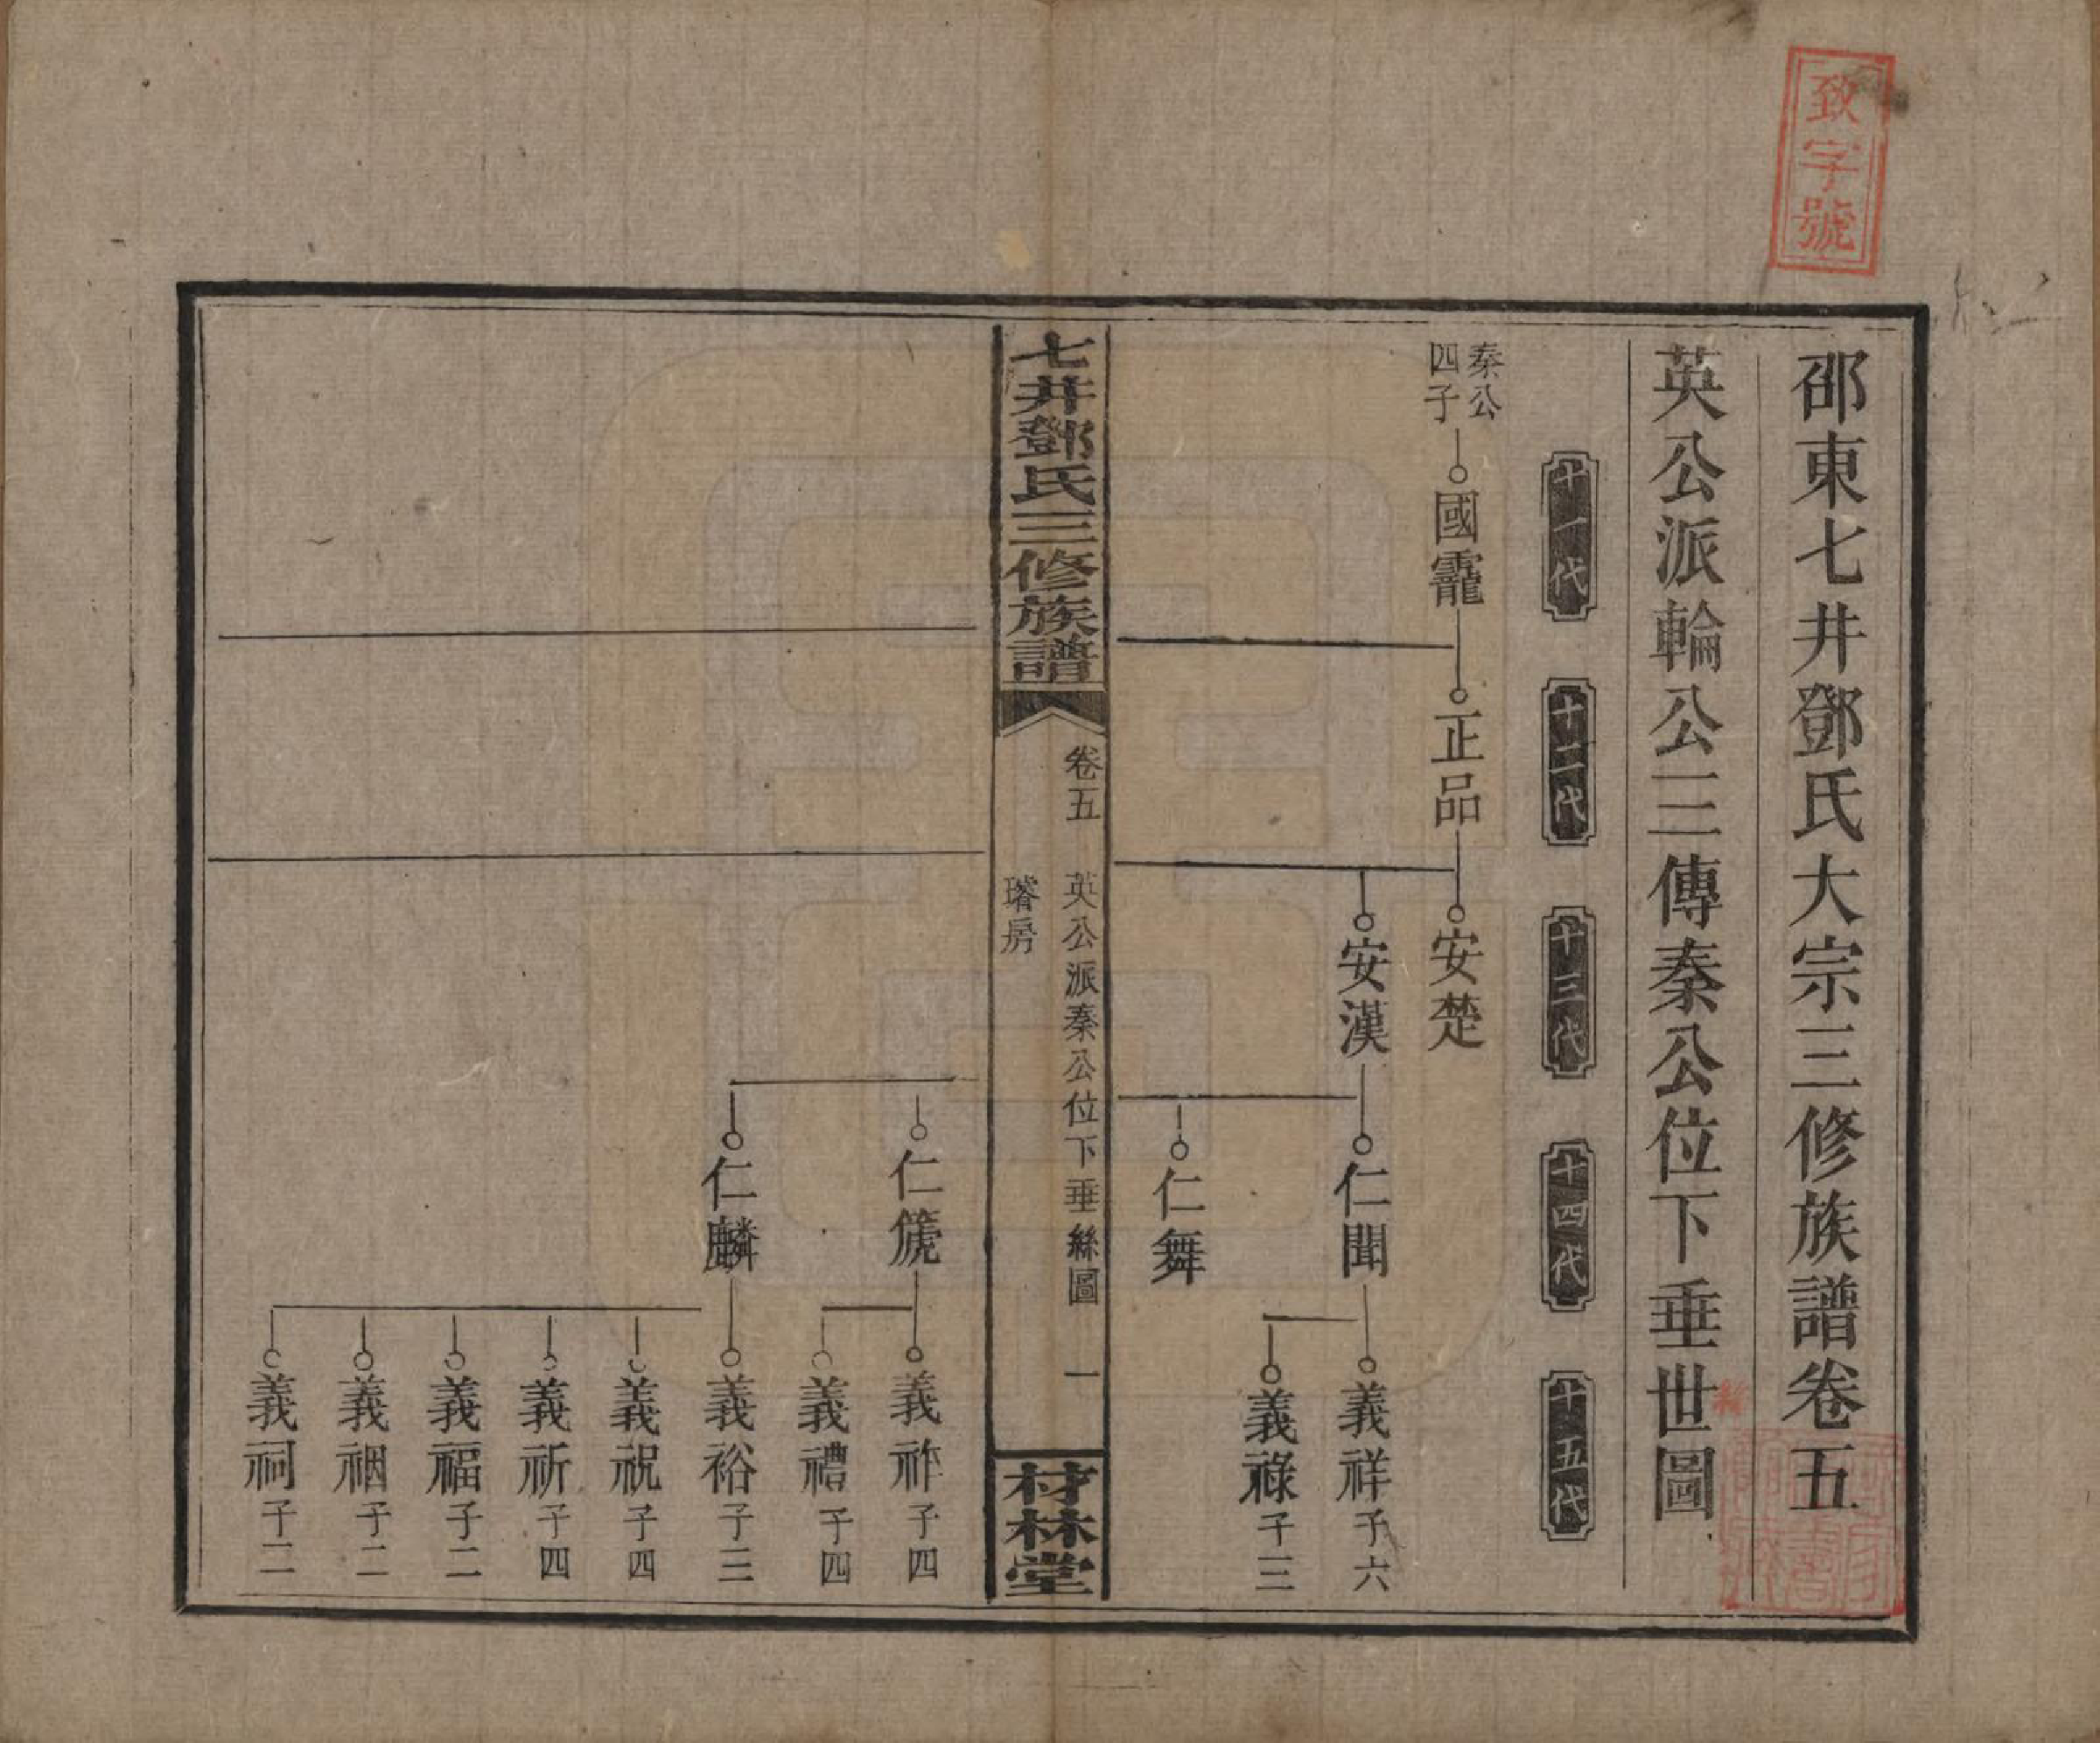 致字號
邵東七井鄧氏大宗三修族譜卷五
英公派輪公三傳秦公位下垂世圖
十一代
十二代
十三代
十四代
十五代
秦公四子
國龗
正品
安楚
安漢
仁聞
義祥子六
義祿子三
仁舞
七井鄧氏三修族譜
卷五
英公派秦公位下垂絲圖
璿房
一
材林堂
仁篪
義祚子四
義禮子四
仁麟
義裕子三
義祝子四
義祈子四
義福子二
義祻子二
義祠子二